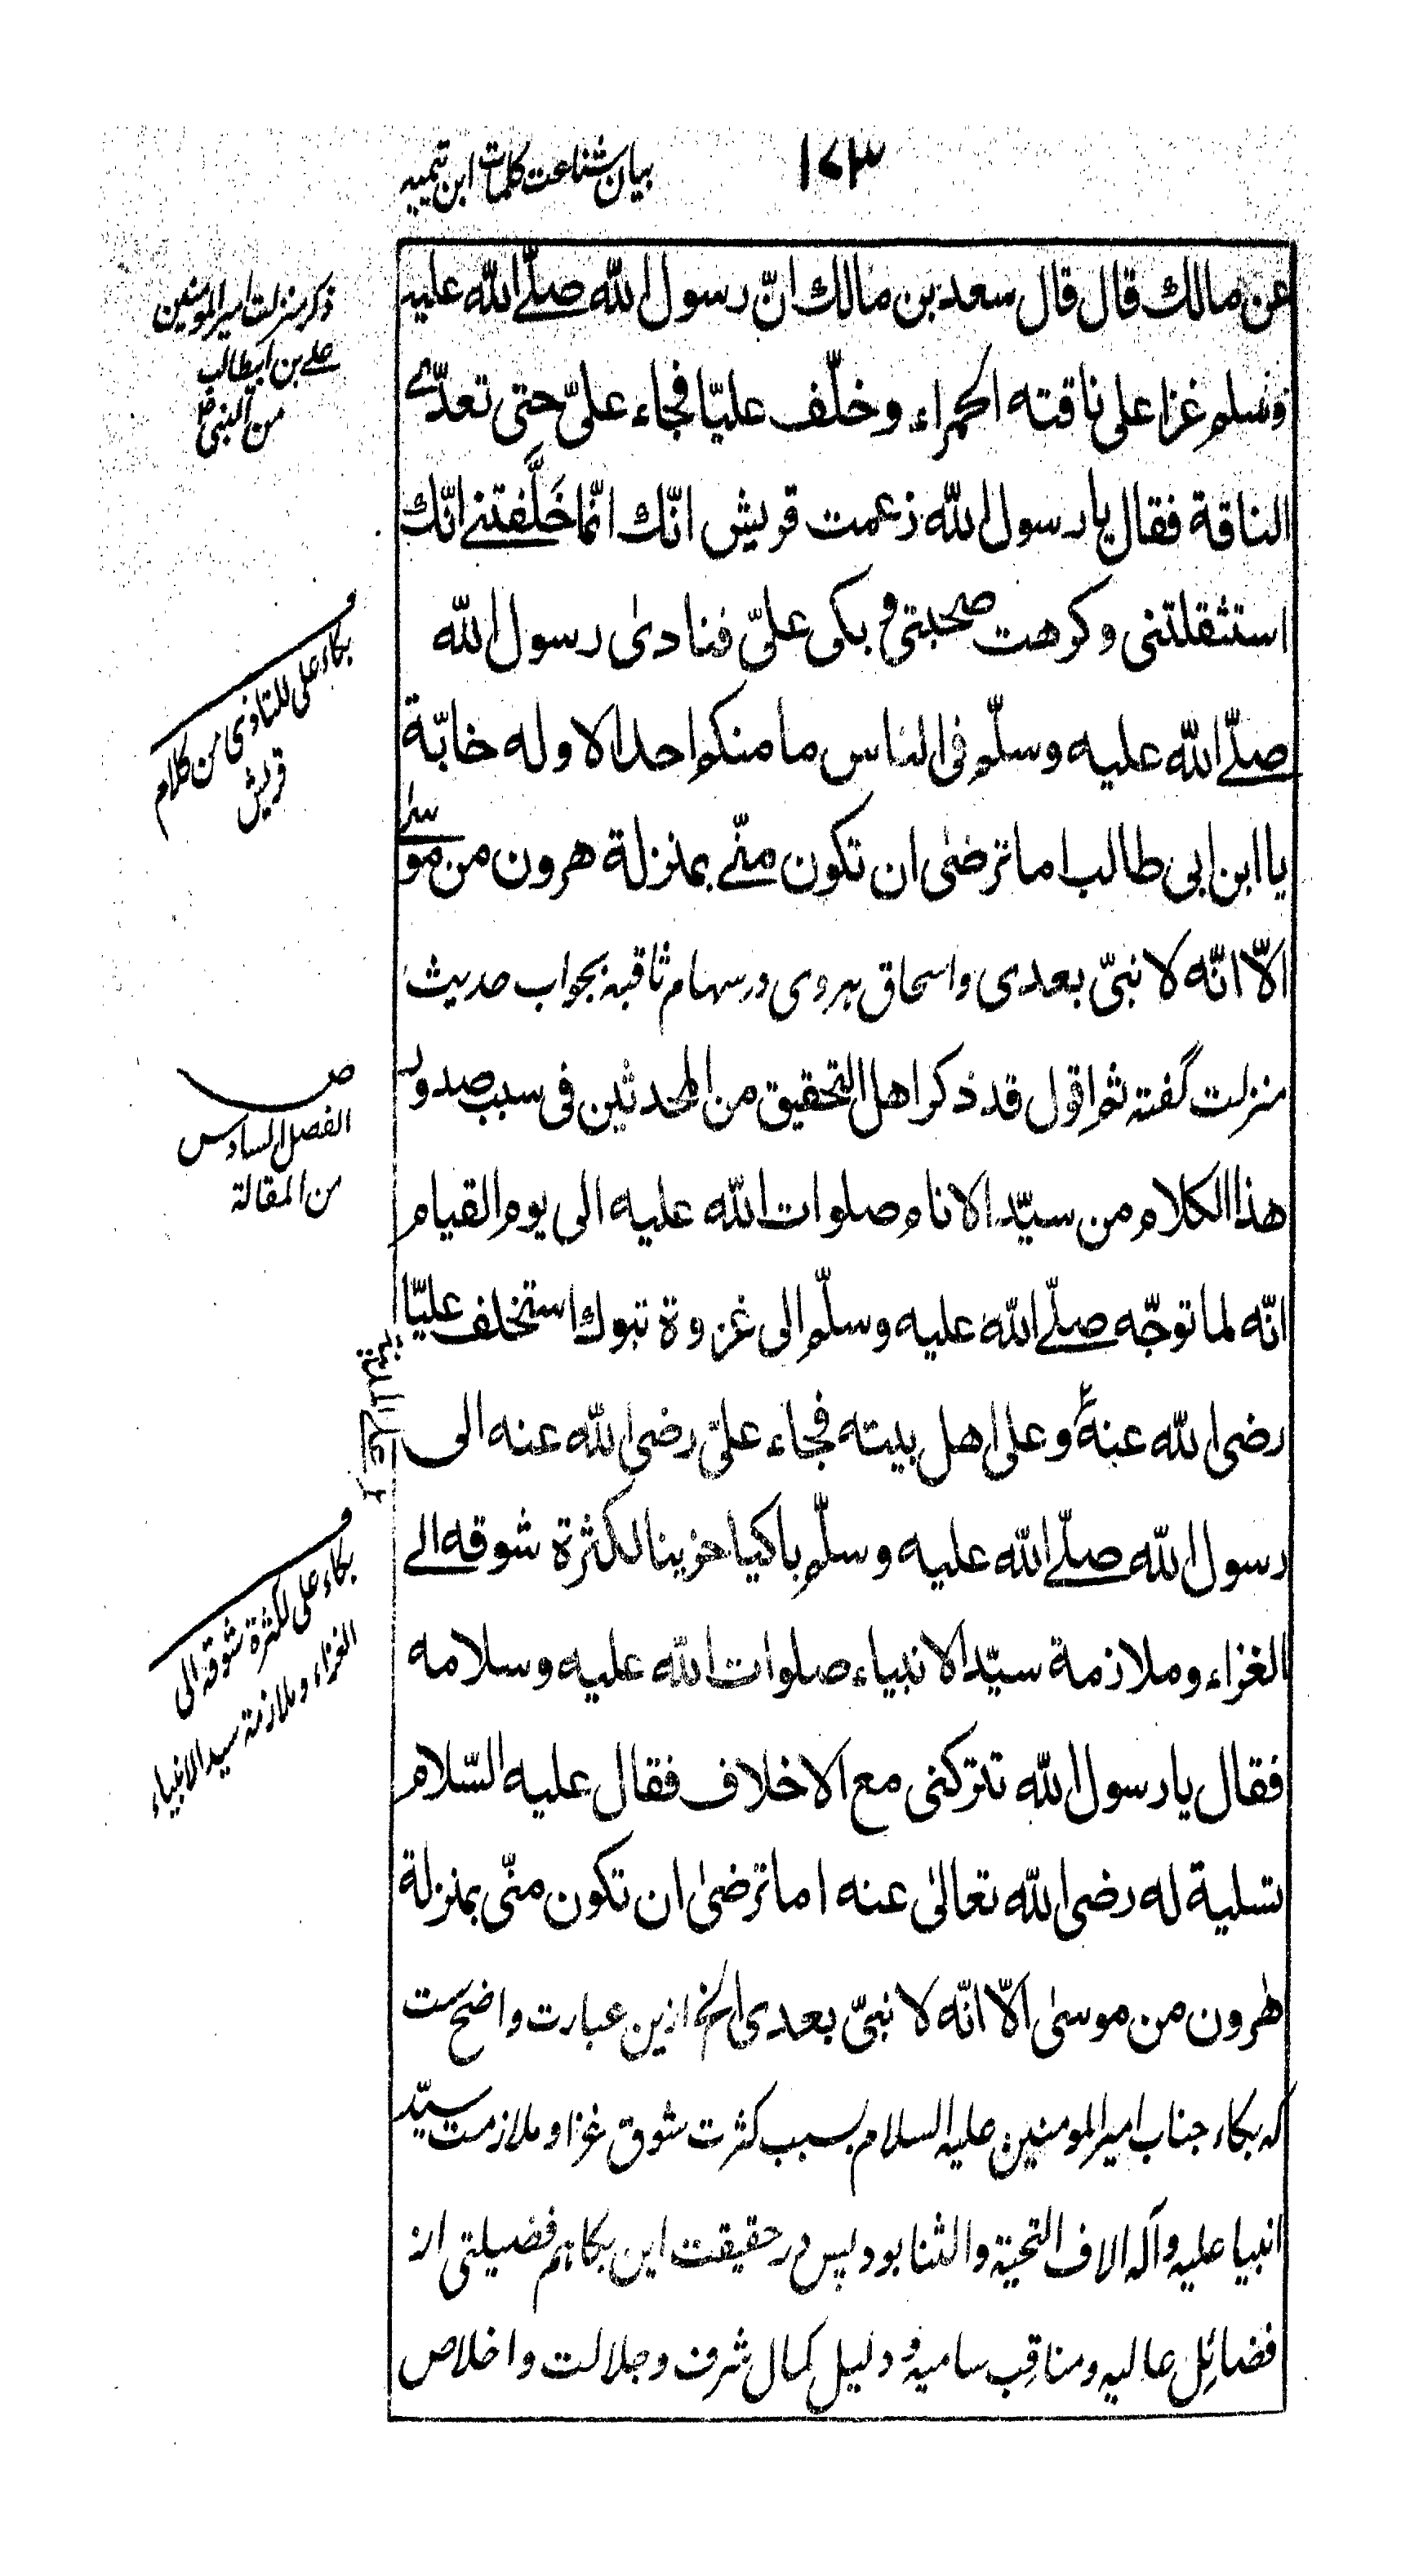 ١٧٣
بیان شناعت کلمات ابن تیمیه
عن مالك قال قال سعد بن مالك انّ رسول اللّه صلّے اللّه عليه
وسلم غزا على ناقته الحمراء وخلّف عليّا فجاء علىّ حتى تعدّے
الناقة فقال يا رسول اللّه زعمت قريش انّك انّما خَلَّفتنے انّك
استثقلتنى وكرهت صحبتى و بكى علىّ فنادىٰ رسول اللّه
صلّے اللّه عليه وسلّم فى الناس ما منكم احد الا وله خابّة
يا ابن ابى طالب اما ترضىٰ ان تكون منّے بمنزلة هرون من موسىٰ
الّا انّه لا نبىّ بعدى واسحاق ہروی در سهام ثاقبه بجواب حدیث
منزلت گفته ثم اقول قد ذكر اهل التحقيق من المحدثين فى سبب صدور
هذا الكلام من سيّد الانام صلوات اللّه عليه الى يوم القيام
انّه لما توجّه صلّے اللّه عليه وسلّم الى غزوة تبوك استخلف عليّا
رضى اللّه عنه وعلى اهل بيته فجاء علىّ رضى اللّه عنه الى
رسول اللّه صلّے اللّه عليه وسلّم باكيا حزينا لكثرة شوقه الے
الغزاء وملازمة سيّد الانبياء صلوات اللّه عليه وسلامه
فقال يا رسول اللّه تتركنى مع الاخلاف فقال عليه السّلام
تسلية له رضى اللّه تعالىٰ عنه اما ترضىٰ ان تكون منّى بمنزلة
هٰرون من موسىٰ الّا انّه لا نبىّ بعدى الخ ازین عبارت واضح ست
که بکاء جناب امیر المومنین علیه السلام بسبب کثرت شوق غزا و ملازمت سیّد
انبیا علیه وآله الاف التحیة والثنا بود پس در حقیقت این بکا هم فضیلتی از
فضائل عالیه و مناقب سامیه و دلیل کمال شرف و جلالت و اخلاص
ذکر منزلت امیر المومنین
علے بن ابیطالب
من النبی ص
ف
بکاء علی للتاذی من کلام
قریش
ص
الفصل السادس
من المقالة
على المدينة
ف
بکاء علی لکثرة شوقه الی
الغزاء و ملازمة سید الانبیاء